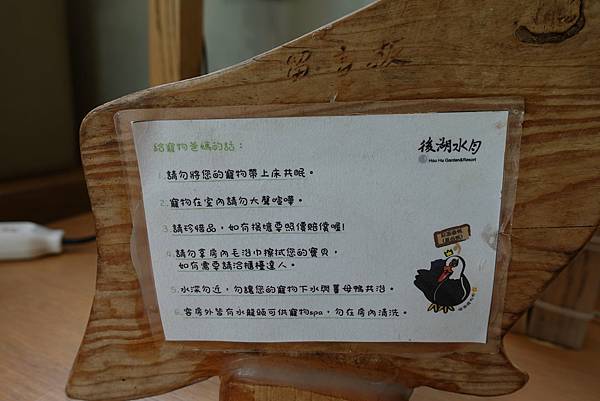 留言板
後湖水月
Hou Hu Garden&Resort
給寵物爸媽的話：
1.請勿將您的寵物帶上床共眠。
2.寵物在室內請勿大聲喧嘩。
3.請珍惜品，如有損壞要照價賠償喔!
4.請勿拿房內毛浴巾擦拭您的寶貝，
如有需要請洽櫃檯達人。
5.水深勿近，勿讓您的寵物下水與薑母鴨共浴。
6.客房外皆有水龍頭可供寵物spa，勿在房內清洗。